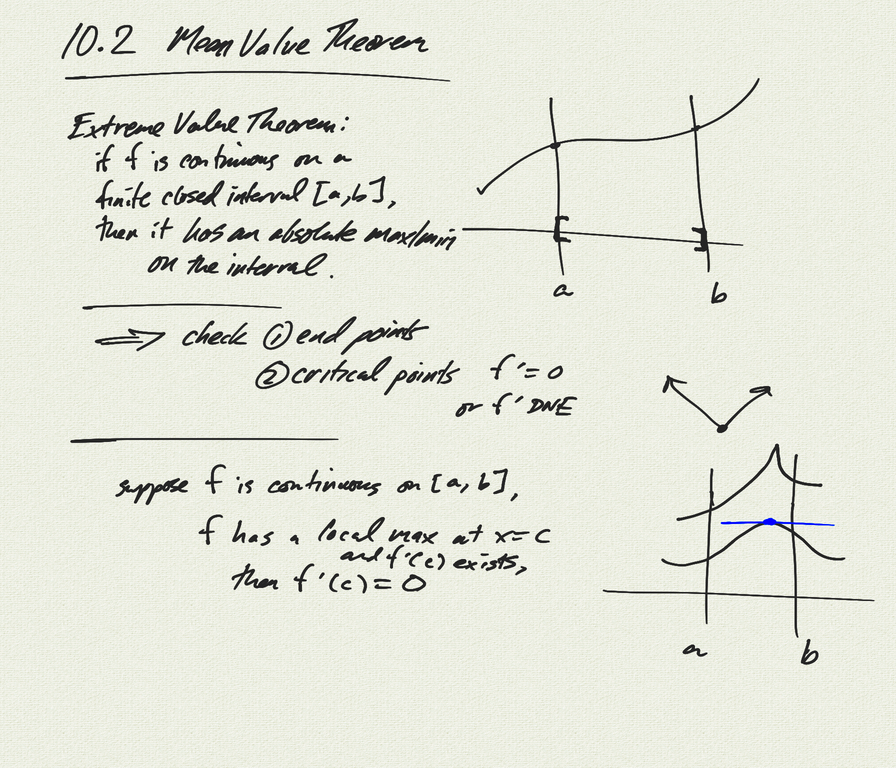 10.2 Mean Value Theorem
Extreme Value Theorem:
if f is continuous on a
finite closed interval [a,b],
then it has an absolute max/min
on the interval.
a
b
⇒ check ① end points
② critical points f' = 0
or f' DNE
suppose f is continuous on [a, b],
f has a local max at x = c
and f'(c) exists,
then f'(c) = 0
a
b